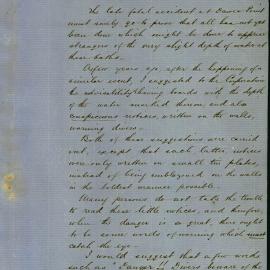 The late fatal accident at Dawes Point
must surely go to prove that all has not yet
been done which might be done to apprise
strangers of the very slight depth of water at
these baths.
A few years ago, after the happening of a
similar event, I suggested to the Corporation
the advisability of having boards with the depth
of the water marked thereon and also
conspicuous notices, written on the walls,
warning divers.
Both of these suggestions were carried
out, except that each latter notices
were only written on small tin plates,
instead of being emblazoned on the walls
in the boldest manner possible.
Many persons do not take the trouble
to read these little notices, and therefore
when the danger is so great, there ought
to be some words of warning which must
catch the eye.
I would suggest that a few words
such as "Danger", "Divers beware of the